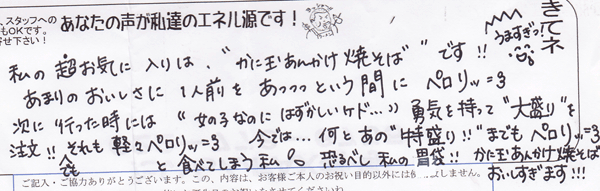 、スタッフへの
もOKです。
寄せ下さい!
あなたの声が私達のエネル源です!
きてネ
うますぎっ!
私の超お気に入りは、"かに玉あんかけ焼そば"です!!
あまりのおいしさに1人前をあっっっという間にペロリッ=3
次に行った時には"女の子なのにはずかしいケド…"勇気を持って"大盛り"を
注文!!それも軽々ペロリッ=3 今では…何とあの"特盛り!!"までもペロリッ=3
でも
と食べてしまう私。恐るべし私の胃袋!!かに玉あんかけ焼そば
おいしすぎます!!!
ご記入・ご協力ありがとうございます。この、内容は、お客様ご本人のお祝い目的以外には